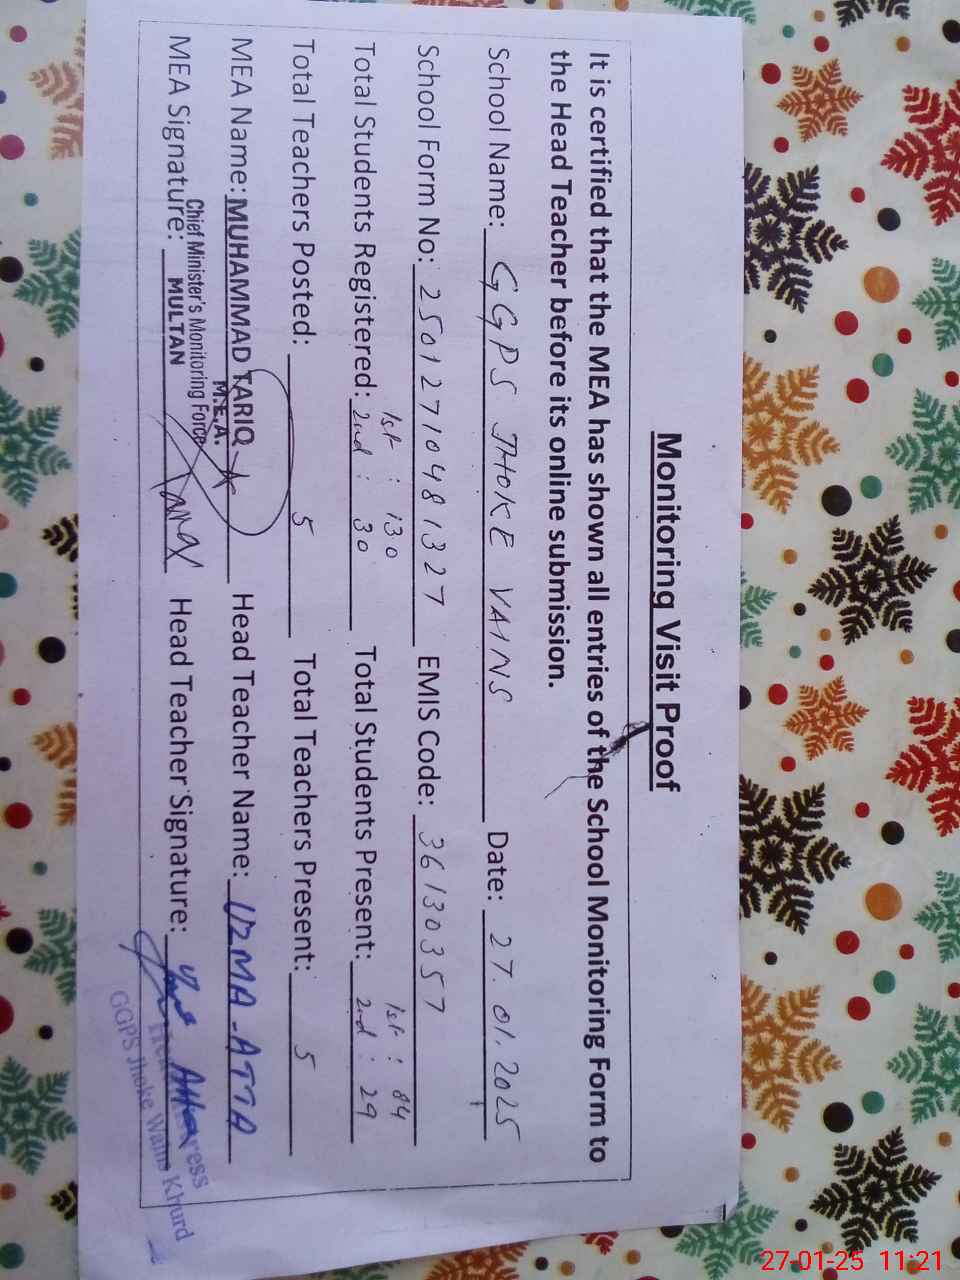 Monitoring Visit Proof
It is certified that the MEA has shown all entries of the School Monitoring Form to
the Head Teacher before its online submission.
School Name: GGPS JHOKE VAINS Date: 27.01.2025
School Form No: 250127104813 27 EMIS Code: 36130357
1st : 130 1st : 84
Total Students Registered: 2nd : 30 Total Students Present: 2nd : 29
Total Teachers Posted: 5 Total Teachers Present: 5
MEA Name: MUHAMMAD TARIQ Head Teacher Name: UZMA-ATTA
M.E.A.
Chief Minister's Monitoring Force
MEA Signature: MULTAN Head Teacher Signature:
GGPS Jhoke Wains Khurd
27-01-25 11:21